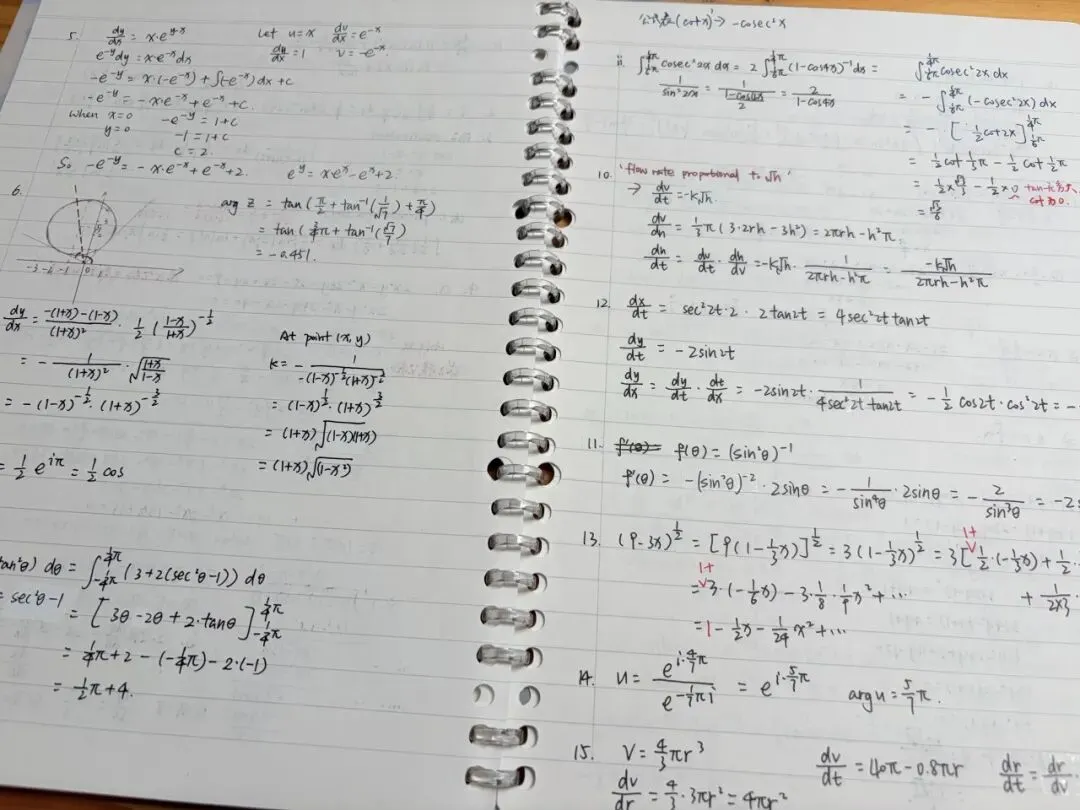 5. dy/dx = x·e^(y-x)    Let u=x    dv/dx = e^-x
e^-y dy = x e^-x dx    du/dx = 1    v = -e^-x
-e^-y = x·(-e^-x) + ∫(-e^-x)dx + c
-e^-y = -x·e^-x + e^-x + c.
When x=0    -e^-y = 1+c
y=0    -1 = 1+c
c = 2.
So -e^-y = -x·e^-x + e^-x + 2.    e^y = x e^x - e^x + 2.
6.
arg z = tan(π/2 + tan^-1(1/√7) + π/4)
= tan(3/4π + tan^-1(√7/7))
= -0.451.
-3 -2 -1 0
dy/dx = (-(1+x)-(1-x))/(1+x)² · 1/2 ((1-x)/(1+x))^(-1/2)
= -1/(1+x)² · √((1+x)/(1-x))
= -(1-x)^(-1/2) · (1+x)^(-3/2)
At point (x, y)
k = -1/(-(1-x)^(-1/2)(1+x)^(-3/2))
= (1-x)^(1/2) · (1+x)^(3/2)
= (1+x)√((1-x)(1+x))
= (1+x)√(1-x²)
= 1/2 e^(iπ) = 1/2 cos
tan²θ) dθ = ∫_(-1/4π)^(1/4π) (3+2(sec²θ-1)) dθ
= sec²θ-1    = [3θ-2θ+2·tanθ]_(-1/4π)^(1/4π)
= 1/4π+2-(-1/4π)-2·(-1)
= 1/2π+4.
(cotx)' → -cosec²x
ii. ∫_(1/6π)^(1/4π) cosec²2x dx = 2∫_(1/6π)^(1/4π) (1-cos4x)^-1 dx =
1/sin²2x = 1/((1-cos4x)/2) = 2/(1-cos4x)
∫_(1/6π)^(1/4π) cosec²2x dx
= -∫_(1/6π)^(1/4π) (-cosec²2x) dx
= -[1/2 cot2x]_(1/6π)^(1/4π)
= 1/2 cot 1/3π - 1/2 cot 1/2π
= 1/2 × √3/3 - 1/2 × 0
= √3/6
10. 'flow rate proportional to √h'
→ dv/dt = -k√h.
dv/dh = 1/3π(3·2rh-3h²) = 2πrh-h²π.
dh/dt = dv/dt · dh/dv = -k√h · 1/(2πrh-h²π) = -k√h/(2πrh-h²π)
12. dx/dt = sec²2t·2·2tan2t = 4sec²2t tan2t
dy/dt = -2sin2t
dy/dx = dy/dt · dt/dx = -2sin2t · 1/(4sec²2t tan2t) = -1/2 cos2t·cos²2t = -
11. f'(θ)= f(θ) = (sin²θ)^-1
f'(θ) = -(sin²θ)^-2 · 2sinθ = -1/sin⁴θ · 2sinθ = -2/sin³θ = -2s
13. (9-3x)^(1/2) = [9(1-1/3x)]^(1/2) = 3(1-1/3x)^(1/2) = 3[1+ 1/2·(-1/3x) + 1/2·
= 1+ 3·(-1/6x) - 3·1/8·1/9x² + ...    + 1/(2×3)
= 1 - 1/2x - 1/24x² + ...
14. u = e^(i·4/7π)/e^(-1/7πi) = e^(i·5/7π)    arg u = 5/7π.
15. V = 4/3πr³    dv/dt = 40π-0.8πr    dr/dt = dr/dv ·
dv/dr = 4/3·3πr² = 4πr²